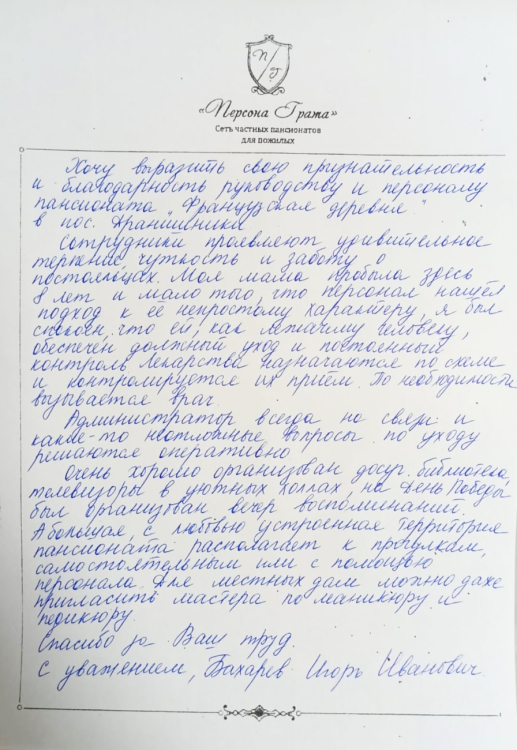 П/Г
«Персона Грата»
Сеть частных пансионатов
для пожилых
Хочу выразить свою признательность
и благодарность руководству и персоналу
пансионата „Французская деревня"
в пос. Дранишники
Сотрудники проявляют удивительное
терпение, чуткость и заботу о
постояльцах. Моя мама пробыла здесь
8 лет и мало того, что персонал нашёл
подход к её непростому характеру, я был
спокоен, что ей, как лежачему человеку,
обеспечен должный уход и постоянный
контроль. Лекарства назначаются по схеме
и контролируется их приём. По необходимости
вызывается врач.
Администратор всегда на связи и
какие-то неотложные вопросы по уходу
решаются оперативно
Очень хорошо организован досуг: библиотека,
телевизоры в уютных холлах, на День Победы
был организован вечер воспоминаний.
А большая, с любовью устроенная территория
пансионата располагает к прогулкам,
самостоятельным или с помощью
персонала. Для местных дам можно даже
пригласить мастера по маникюру и
педикюру.
Спасибо за Ваш труд.
С уважением, Бахарев Игорь Иванович.